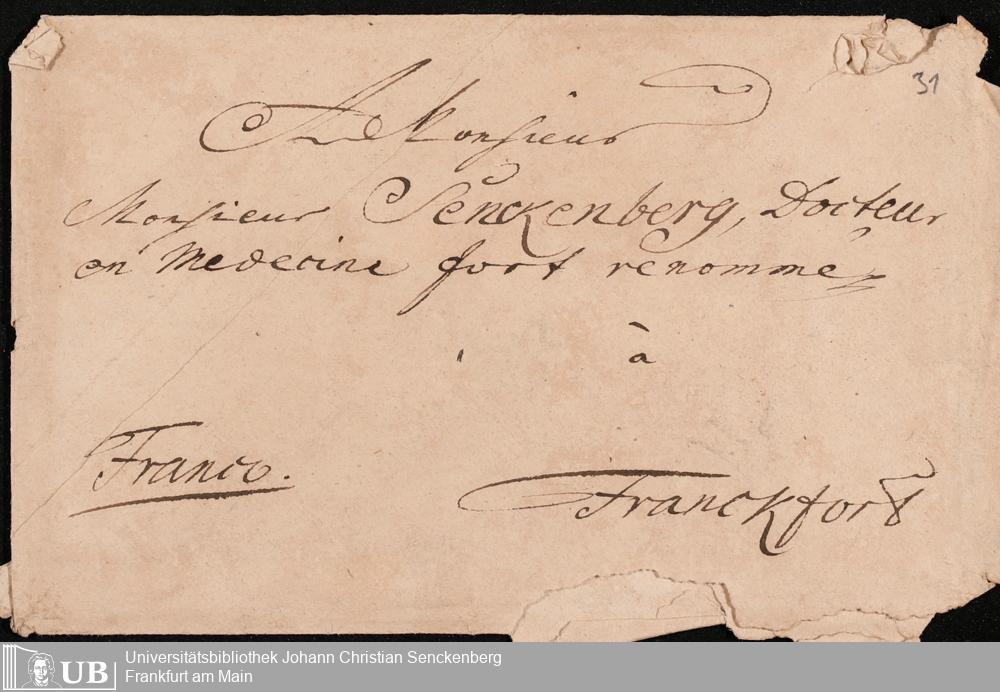 31
A Monsieur
Monsieur Senckenberg, Docteur
en Medecine fort renomme
à
Franco.
Franckfort
UB
Universitätsbibliothek Johann Christian Senckenberg
Frankfurt am Main